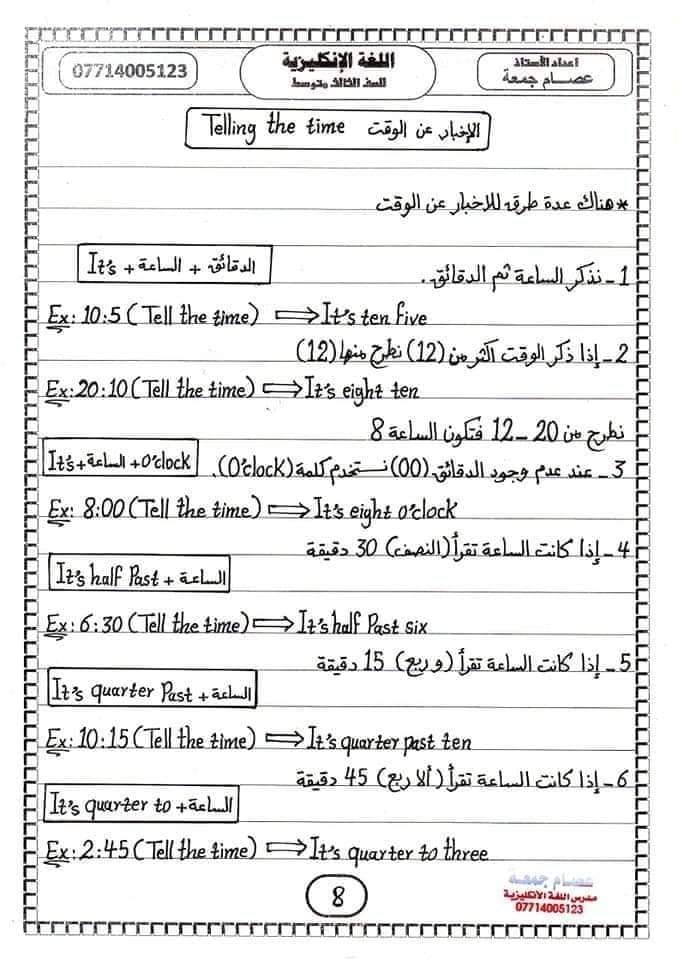 اعداد الأستاذ
عصام جمعة
اللغة الإنكليزية
للصف الثالث متوسط
07714005123
Telling the time الإخبار عن الوقت
*هناك عدة طرق للاخبار عن الوقت
1- نذكر الساعة ثم الدقائق.
It's + الساعة + الدقائق
Ex: 10:5 (Tell the time) ⟹ It's ten five
2- إذا ذكر الوقت اكثر من (12) نطرح منها (12)
Ex: 20:10 (Tell the time) ⟹ It's eight ten
نطرح من 20-12 فتكون الساعة 8
3- عند عدم وجود الدقائق (00) نستخدم كلمة (O'clock).
It's + الساعة + O'clock
Ex: 8:00 (Tell the time) ⟹ It's eight o'clock
4- إذا كانت الساعة تقرأ (النصف) 30 دقيقة
It's half Past + الساعة
Ex: 6:30 (Tell the time) ⟹ It's half Past six
5- إذا كانت الساعة تقرأ (وربع) 15 دقيقة
It's quarter Past + الساعة
Ex: 10:15 (Tell the time) ⟹ It's quarter past ten
6- إذا كانت الساعة تقرأ (ألا ربع) 45 دقيقة
It's quarter to + الساعة
Ex: 2:45 (Tell the time) ⟹ It's quarter to three
8
عصام جمعة
مدرس اللغة الانكليزية
07714005123